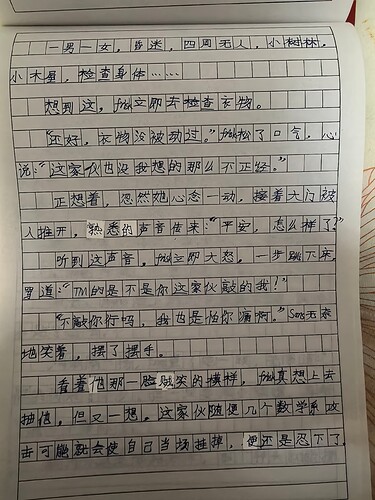 一男一女，昏迷，四周无人，小树林，
小木屋，检查身体……
想到这，她立即去检查衣物。
“还好，衣物没被动过。”她松了口气，心
说：“这家伙也没我想的那么不正经。”
正想着，忽然她心念一动，接着大门被
人推开，熟悉的声音传来：“平安，怎么样了？”
听到这声音，她立即大怒，一步跳下床，
骂道：“TM的是不是你这家伙敲的我！”
“不敲你行吗，我也是怕你痛啊。”Sans无奈
地笑着，摆了摆手。
看着他那一脸欠笑的模样，她真想上去
抽他，但又一想，这家伙随便几个数学系攻
击可能就会使自己当场挂掉，便还是忍下了。